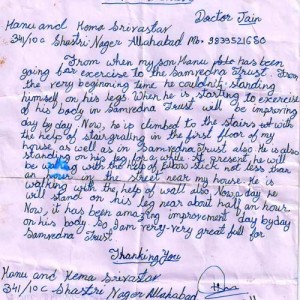 Doctor Jain
Manu and Hema Srivastav
341/10c Shastri Nager Allahabad Mb. 9839521680
From when my son Manu has been
going for exercise to the Samvedna Trust. From
the very beginning time, he couldn't standing
himself on his legs. When he is starting to exercise
of his body in Samvedna Trust will be improving
day by day. Now, he is climbed to the stairs not with
the help of stairgratings in the first floor of my
house, as well as in Samvedna Trust also. He is also
standing on his leg for a while. At present, he will
be walking with the help of elbow stick not less than
an in the street near my house. He is
walking with the help of wall also. Now a day he
will stand on his leg near about half an hour.
Now, it has been amazing improvement day by day
on his body. So I am very-very great full for
Samvedna Trust.
Thanking You
Manu and Hema Srivastav
341/10c Shastri Nager Allahabad